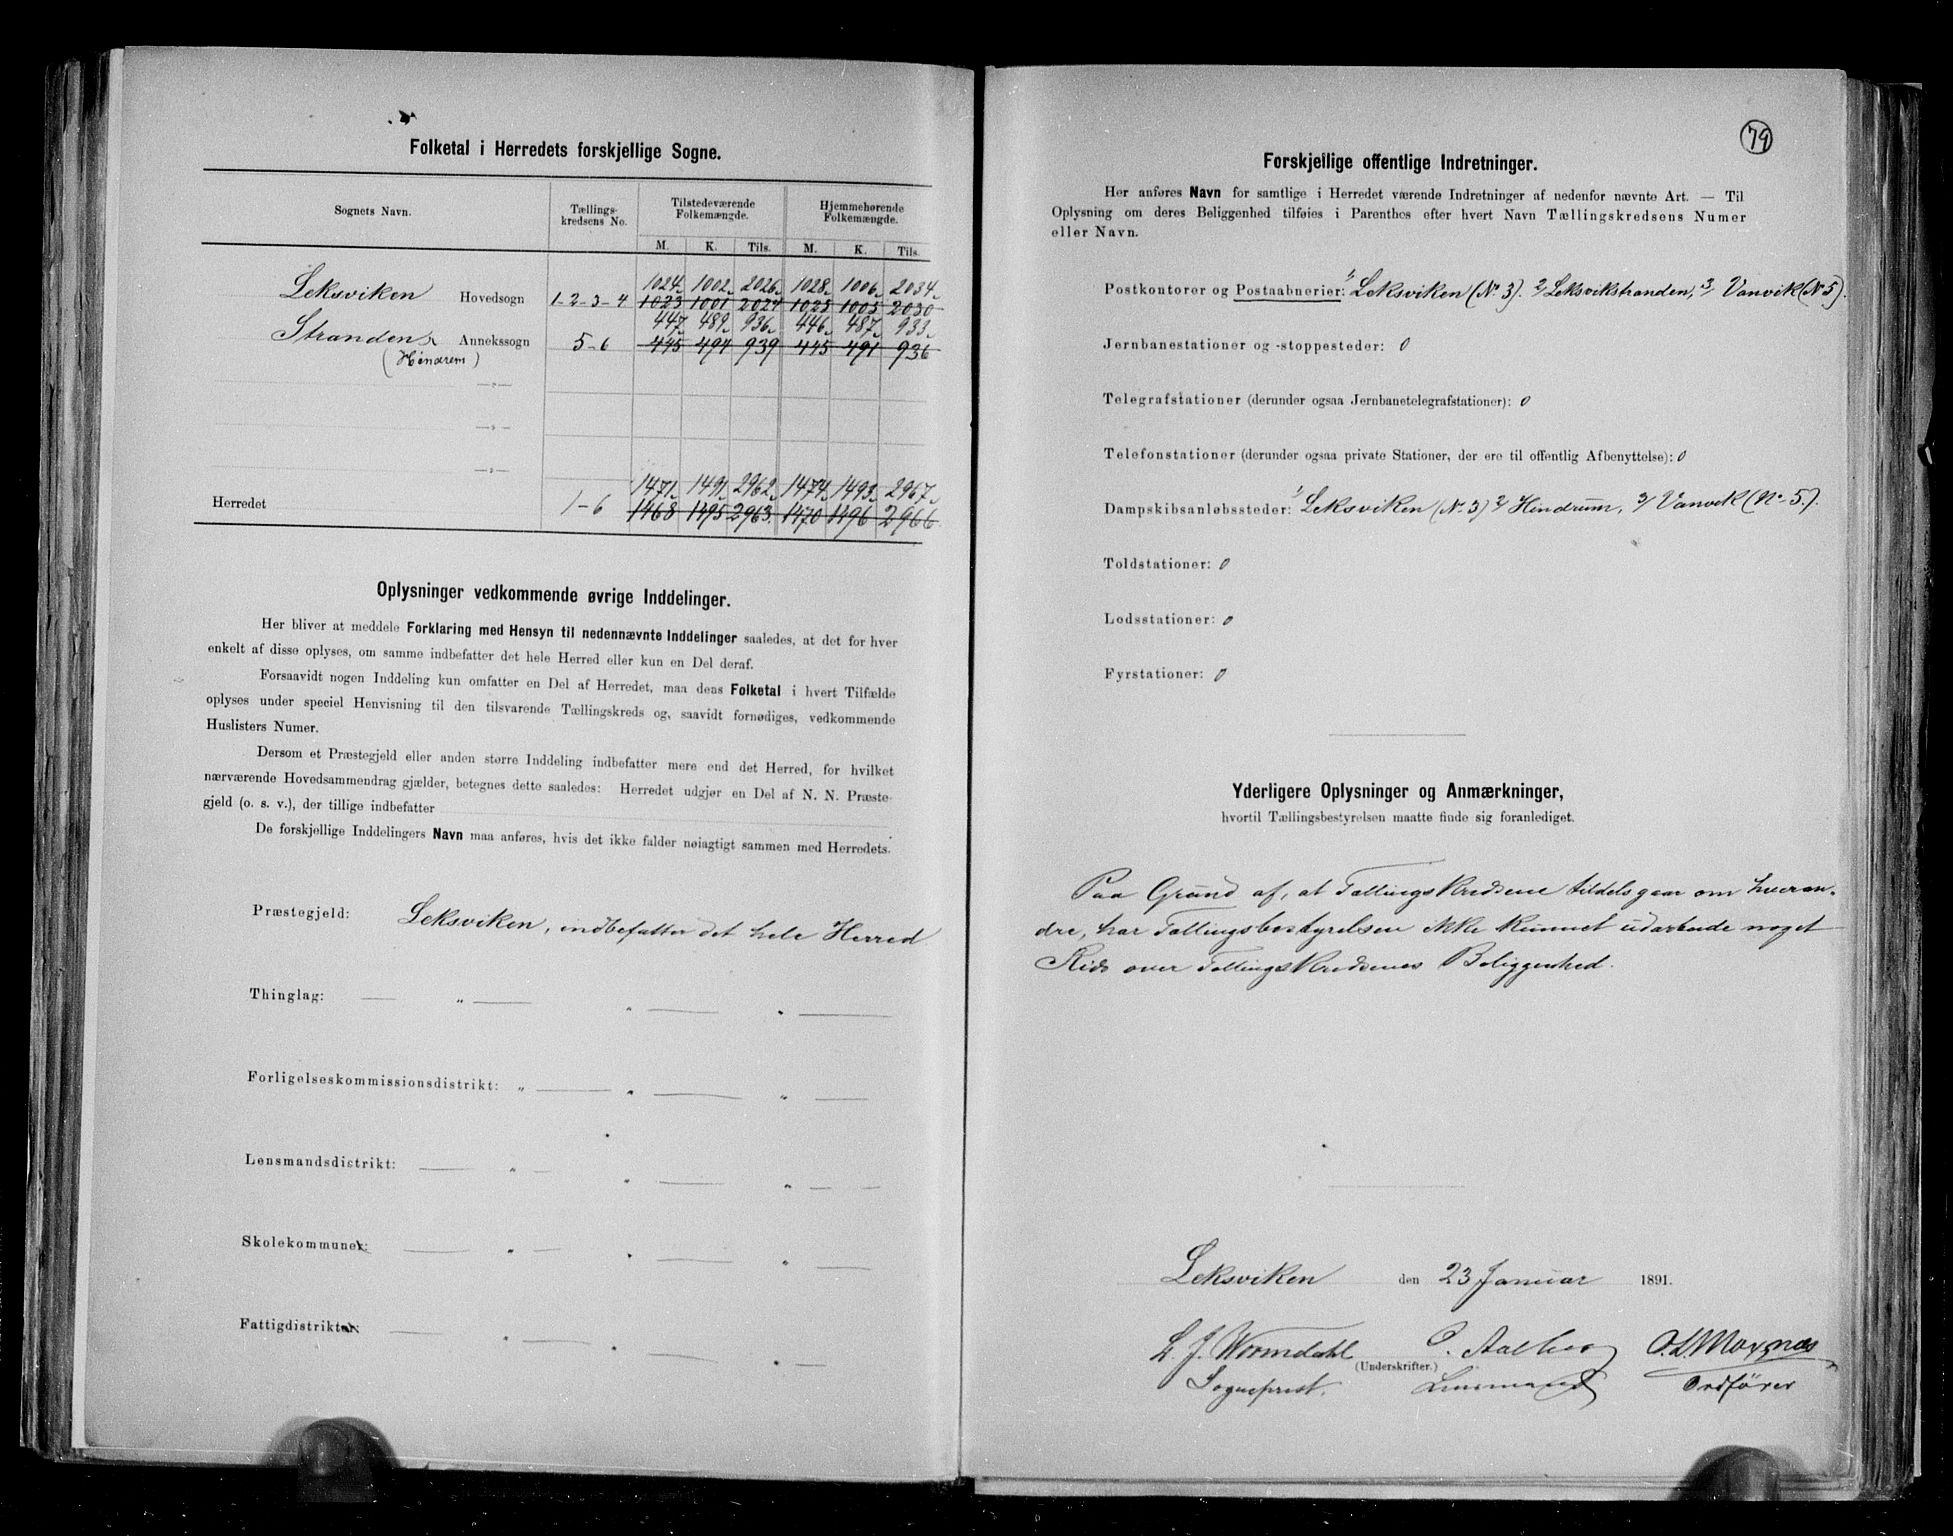 Folketal i Herredets forskjellige Sogne.
Sognets Navn.
Tællings-
kredsens No.
Tilstedeværende
Folkemængde.
Hjemmehørende
Folkemængde.
M. K. Tils. M. K. Tils.
1024 1002 2026 1028 1006 2034
Leksviken Hovedsogn 1-2-3-4 1023 1001 2024 1025 1005 2030
447 489 936 446 487 933
Stranden Annekssogn 5-6 445 494 939 445 491 936
(Hindrem)
—„—
—„—
—„—
1471 1491 2962 1474 1493 2967
Herredet 1-6 1468 1495 2963 1470 1496 2966
Oplysninger vedkommende øvrige Inddelinger.
Her bliver at meddele Forklaring med Hensyn til nedennævnte Inddelinger saaledes, at det for hver
enkelt af disse oplyses, om samme indbefatter det hele Herred eller kun en Del deraf.
Forsaavidt nogen Inddeling kun omfatter en Del af Herredet, maa dens Folketal i hvert Tilfælde
oplyses under speciel Henvisning til den tilsvarende Tællingskreds og, saavidt fornødiges, vedkommende
Huslisters Numer.
Dersom et Præstegjeld eller anden større Inddeling indbefatter mere end det Herred, for hvilket
nærværende Hovedsammendrag gjælder, betegnes dette saaledes: Herredet udgjør en Del af N. N. Præste-
gjeld (o. s. v.), der tillige indbefatter
De forskjellige Inddelingers Navn maa anføres, hvis det ikke falder nøiagtigt sammen med Herredets.
Præstegjeld: Leksviken, indbefatter det hele Herred
Thinglag: — „ — „ — „ —
Forligelseskommissionsdistrikt: „ — „ — „ —
Lensmandsdistrikt: — „ — „ — „ —
Skolekommuner: — „ — „ — „ —
Fattigdistrikter: — „ — „ — „ —
79
Forskjellige offentlige Indretninger.
Her anføres Navn for samtlige i Herredet værende Indretninger af nedenfor nævnte Art. — Til
Oplysning om deres Beliggenhed tilføies i Parenthes efter hvert Navn Tællingskredsens Numer
eller Navn.
Postkontorer og Postaabnerier: 1/ Leksviken (No 3). 2/ Leksvikstranden, 3/ Vanvik (No 5).
Jernbanestationer og -stoppesteder: 0
Telegrafstationer (derunder ogsaa Jernbanetelegrafstationer): 0
Telefonstationer (derunder ogsaa private Stationer, der ere til offentlig Afbenyttelse): 0
Dampskibsanløbssteder: 1/ Leksviken (No 3) 2/ Hindrum, 3/ Vanvik (No 5).
Toldstationer: 0
Lodsstationer: 0
Fyrstationer: 0
Yderligere Oplysninger og Anmærkninger,
hvortil Tællingsbestyrelsen maatte finde sig foranlediget.
Paa Grund af, at Tællingskredsene tildels gaar om hveran-
dre, har Tællingsbestyrelsen ikke kunnet udarbeide noget
Rids over Tællingskredsenes Beliggenhed.
Leksviken den 23 Januar 1891.
L. J. Wormdahl O. Aalberg
(Underskrifter.)
Sogneprest. Lensmand Ordfører